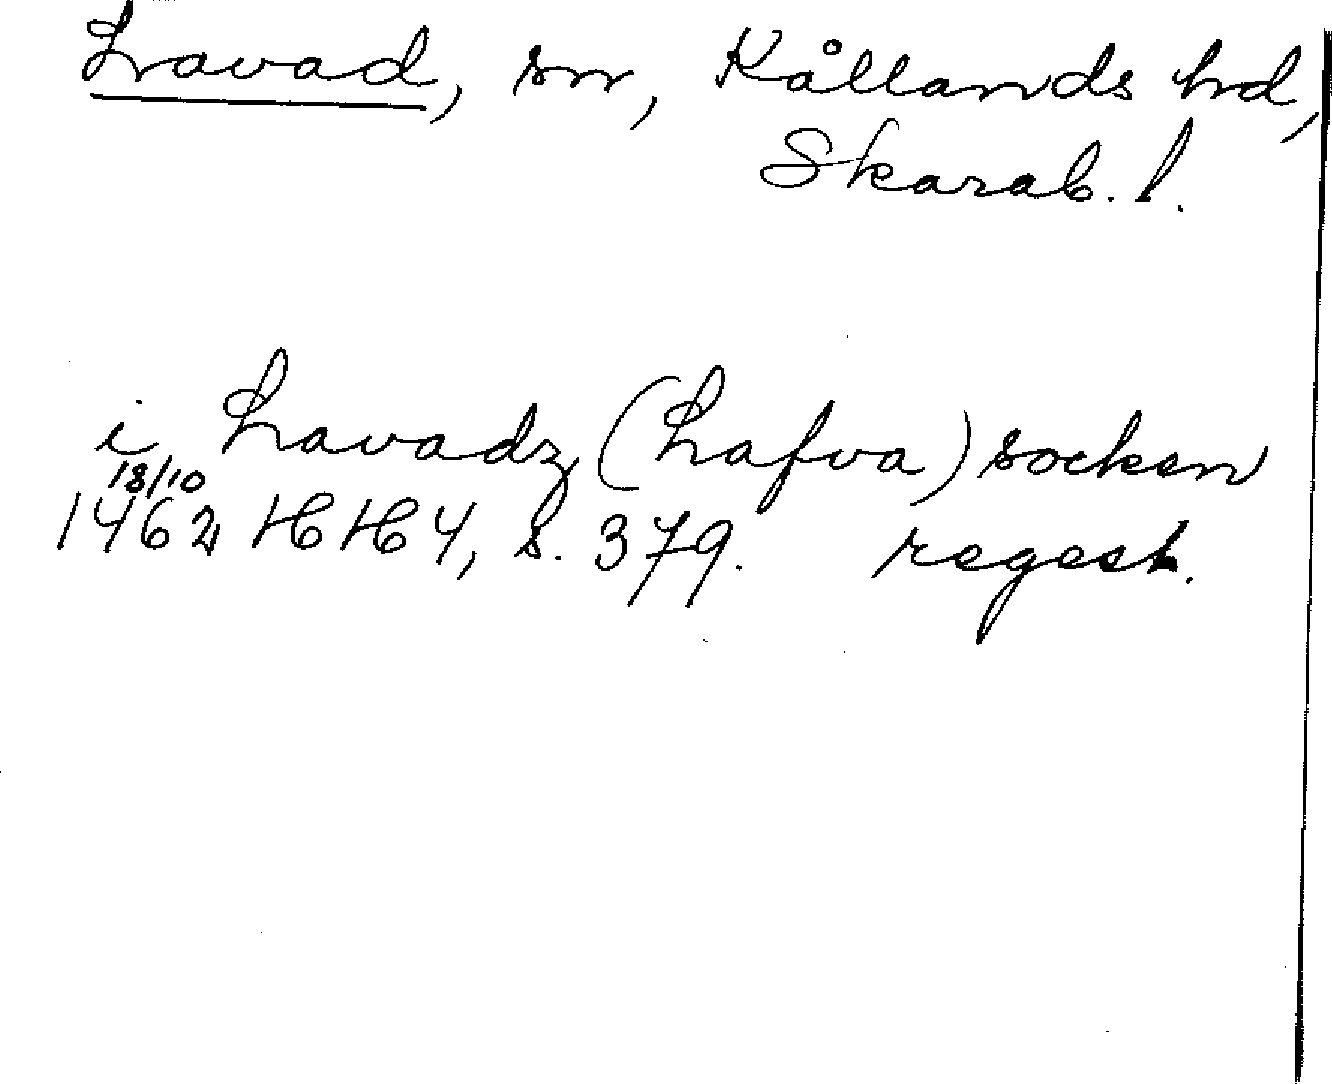 Lavad, sn, Kållands hd,
Skarab. l.
i Lavadz (Lafva) socken
18/10
1462 HH 4, s. 379. regest.